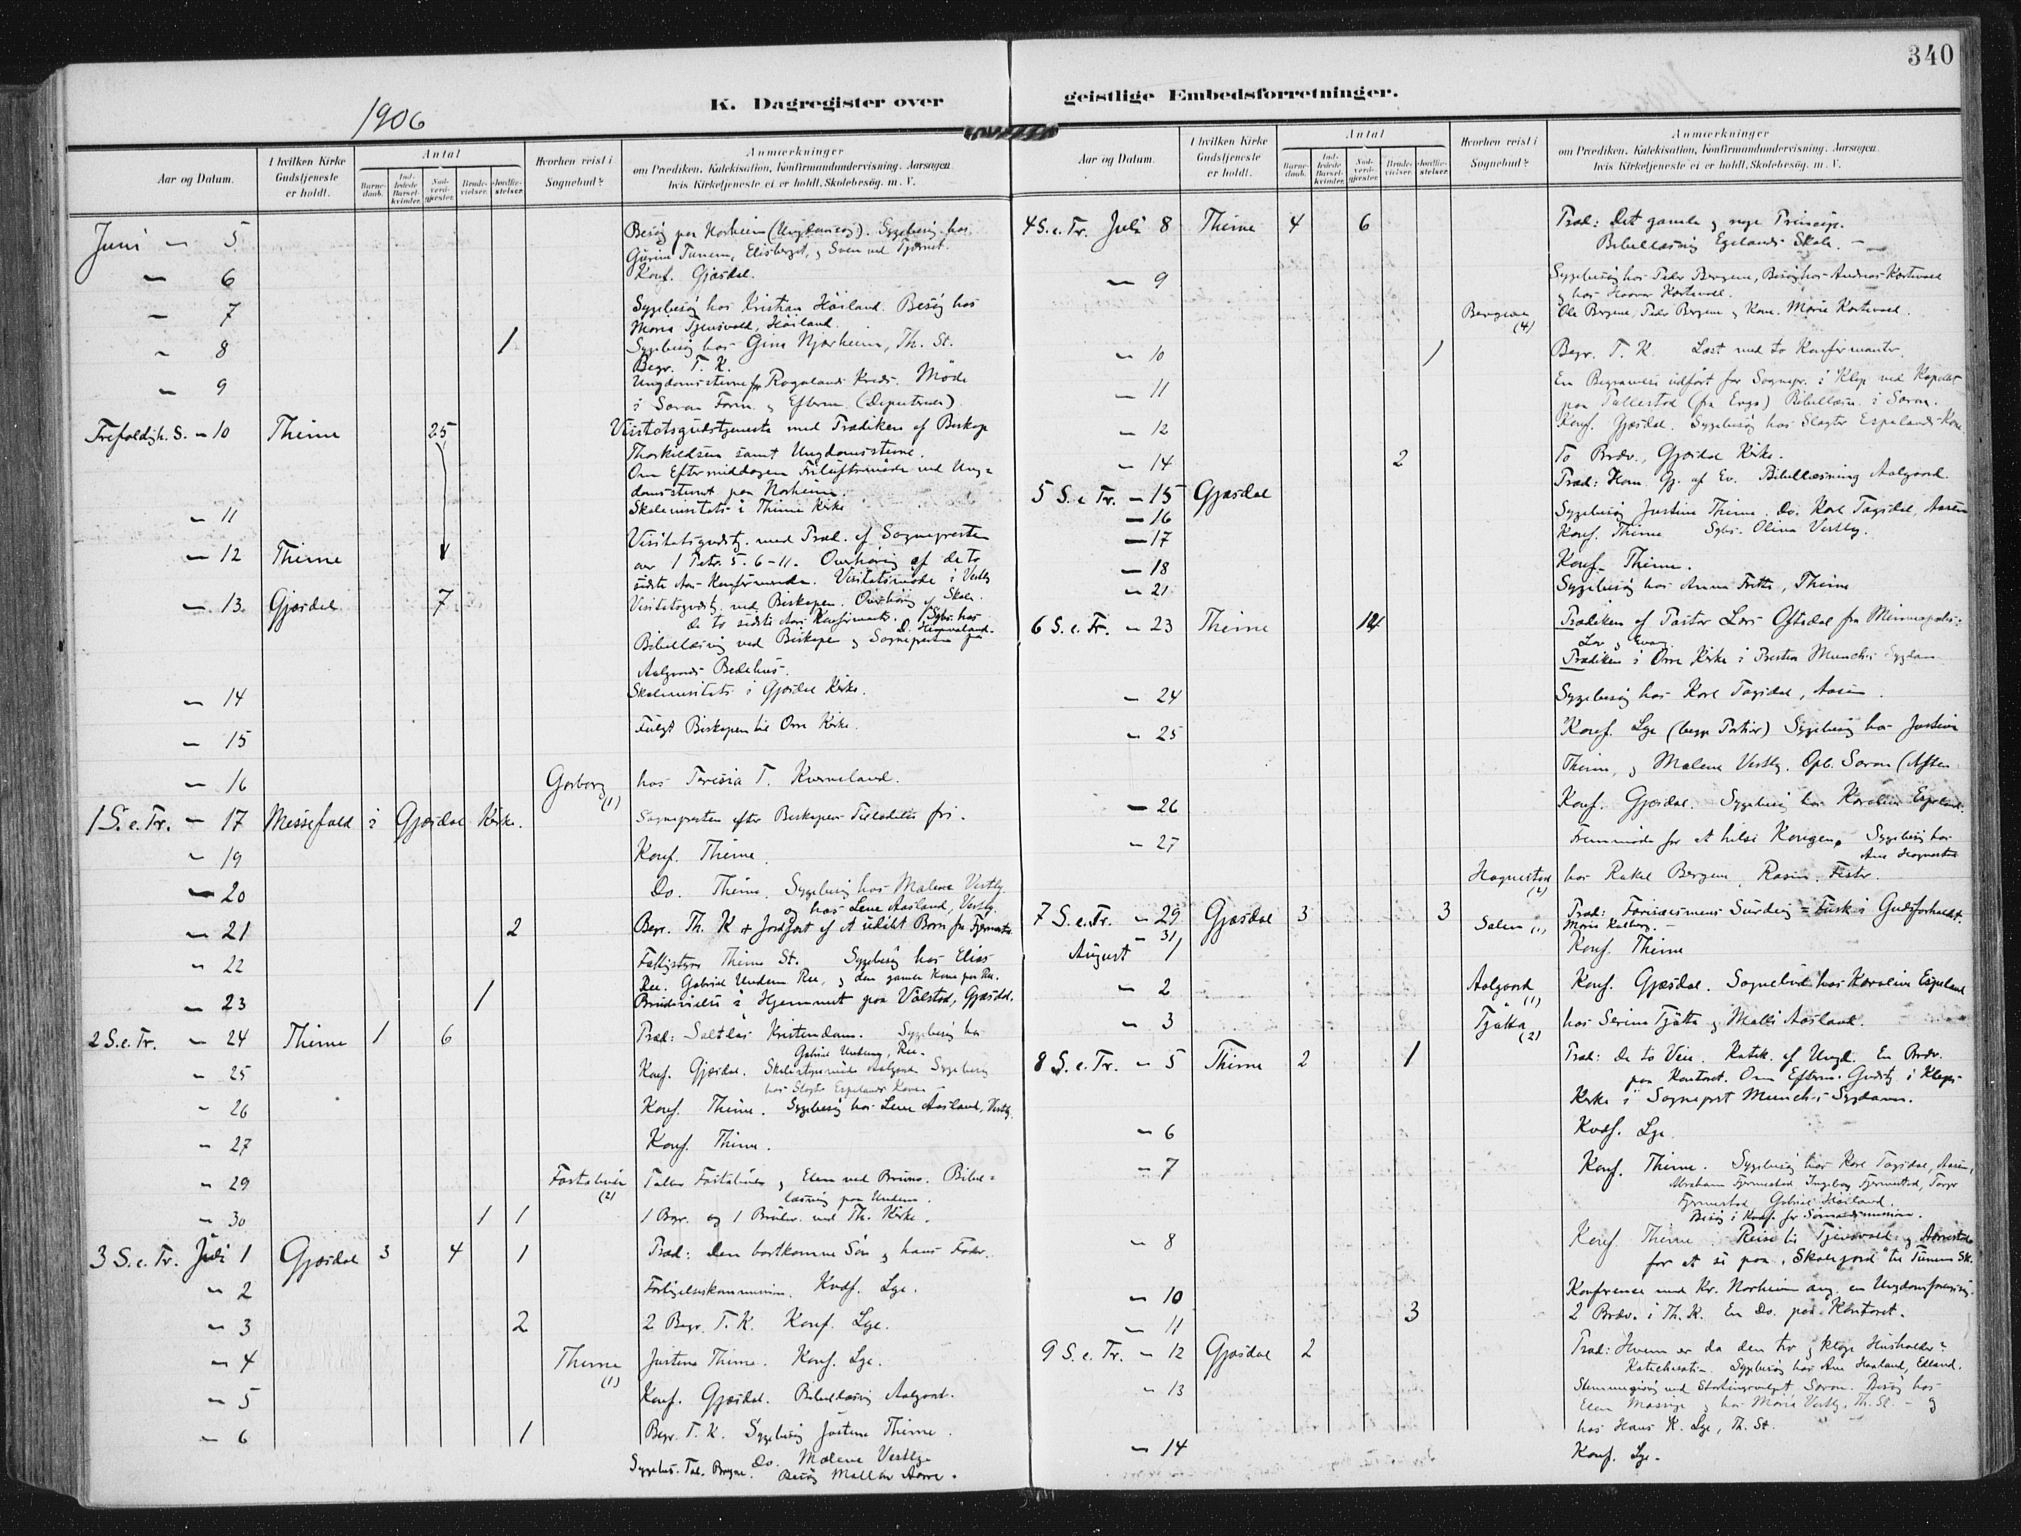 340
1906
K. Dagregister over
geistlige Embedsforretninger.
Aar og Datum.
I hvilken Kirke Gudstjeneste er holdt.
Antal
Barne-daab.
Ind-ledede Barsel-kvinder.
Nad-verd-gjester.
Brude-vielser.
Jordfæ-stelser.
Hvorhen reist i Sognebud?
Anmærkninger
om Prædiken, Katekisation, Konfirmandundervisning. Aarsagen
hvis Kirketjeneste ei er holdt. Skolebesøg. m. V.
Juni - 5 Besøg paa Norheim (Ungdomssag). Sygebesøg hos
Gurine Tunem, Elisberget, og Sven ved Tjærnet.
- 6 Konf. Gjæsdal.
- 7 Sygebesøg hos Kristian Höiland. Besøg hos
Maria Tjensvold, Höiland.
- 8 1 Sygebesøg hos Gina Njærheim, Th. St.
Begr. T. K.
- 9 Ungdomsstevne for Rogalands Kreds. Møde
i Form. og Efterm.
Trefoldigh. S. - 10 Thime 25 Visitatsgudstjeneste med Prædiken af Biskop
Thorkildsen samt Ungdomsstevne.
Om Eftermiddagen Friluftsmøde ved Ung-
domsstevnet paa Norheim.
- 11 Skolevisitats i Thime Kirke
- 12 Thime Visitatsgudstj. med Præd. af Sognepresten
over 1 Petr. 5. 6-11. Overhøring af de to
sidste Aars Konfirmander. Visitatsmøde i Vestly
Skole.
- 13. Gjæsdal 7 Visitatsgudstj. ved Biskopen. Overhøring af
de to sidste Aars Konfirmander. Sygbs. hos
Bibellæsning ved Biskopen og Sognepresten paa
Aalgaards Bedehus.
- 14 Skolevisitats i Gjæsdal Kirke.
- 15 Fulgt Biskopen til Orre Kirke.
- 16 Garborg (1) hos Terisia T. Kverneland.
1 S. e. Tr. - 17 Messefald i Gjæsdal Kirke. Sognepresten efter Biskopens Tilladelse fri.
- 19 Konf. Thime.
- 20 Do. Thime. Sygebesøg hos Malene Vestly.
og hos Lene Aasland, Vestly.
- 21 2 Begr. Th. K. + Jordfæst af et udøbt Barn fra Fjermestad
- 22 Fattigstyre Thime St. Sygebesøg hos Elias
Ree. Gabriel Undem Ree, og den gamle Kone paa Ree.
- 23 1 Brudevielse i Hjemmet paa Vølstad, Gjæsdal.
2 S. e. Tr. - 24 Thime 1 6 Præd: Saltløs Kristendom. Sygebesøg hos
Gabriel Undem, Ree.
- 25 Konf. Gjæsdal. Aalgaard. Sygebesøg
hos Slagter Espelands Kone -
- 26 Konf. Thime. Sygebesøg hos Lene Aasland, Vestly.
- 27 Konf. Thime.
- 29 (2) og Elen ved Bruno. Bibel-
læsning paa Undem.
- 30 1 1 1 Begr. og 1 Brudev. ved Th. Kirke.
3 S. e. Tr. Juli 1 Gjæsdal 3 4 1 Præd: Den bortkomne Søn og hans Fader.
- 2 Forligelseskommission. Konf. Lye.
- 3 2 2 Begr. T. K. Konf. Lye.
- 4 Thime (1) Justine Thime. Konf. Lye.
- 5 Konf. Gjæsdal. Bibellæsning Aalgaard.
- 6 1 Begr. T. K. Sygebesøg Justine Thime.
Do. Malene Vestly
Aar og Datum.
I hvilken Kirke Gudstjeneste er holdt.
Antal
Barne-daab.
Ind-ledede Barsel-kvinder.
Nad-verd-gjester.
Brude-vielser.
Jordfæ-stelser.
Hvorhen reist i Sognebud?
Anmærkninger
om Prædiken, Katekisation, Konfirmandundervisning. Aarsagen
hvis Kirketjeneste ei er holdt. Skolebesøg. m. V.
4 S. e. Tr. Juli 8 Thime 4 6 Præd: Det gamle og nye Princip.
Bibellæsning Egelands Skole. -
- 9 Sygebesøg hos Peder Bergene, Besøg hos Andreas Kartevold
og hos Haaver Kartevold.
Bergene (4) Ole Bergene, Peder Bergene og Kone. Marie Kartevold.
- 10 1 Begr. T. K. Læst med to Konfirmanter.
- 11 En Begravelse udført for Sognepr. i Klep ved Kapellet
paa Bibellæsn.
- 12 Konf. Gjæsdal. Sygebesøg hos Slagter Espelands Kone
- 14 2 To Brdv., Gjæsdal Kirke.
5 S. e. Tr. - 15 Gjæsdal Præd: Bibellæsning Aalgaard.
- 16 Sygebesøg Justine Thime. Do. Karl Tagsdal, Aasen
- 17 Konf. Thime Sgbs. Olina Vestly.
- 18 Konf. Thime.
- 21 Sygebesøg hos Anna Thime
6 S. e. Tr. - 23 Thime 14 Prædiken af Pastor Lars Oftedal fra Minneapolis:
Lov og Evang.
Prædiken i Orre Kirke i Presten Munchs Sygdom
- 24 Sygebesøg hos Karl Tagsdal, Aasen.
- 25 Konf. Lye (begge Partier) Sygebesøg hos Justine
Thime, og Malene Vestly.
- 26 Konf. Gjæsdal. Sygebesøg hos Karoline Espeland.
- 27 Fremmøde for at hilse Kongen. Sygebesøg hos
Ane Hognestad
Hognestad (2) hos Rakel Bergene,
7 S. e. Tr. - 29 Gjæsdal 3 3 Præd: Farisæernes Surdeig = Fusk i Gudsforholdet.
- 31 Salen (1) Marie Kalberg. -
August 1 Konf. Thime
- 2 Aalgaard (1) Konf. Gjæsdal. Sognebud hos Karoline Espeland
- 3 Tjåtta (2) hos Serine Tjåtta og Malli Aasland.
8 S. e. Tr. - 5 Thime 2 1 Præd: De to Veie. Katek. af Ungd. En Brdv.
paa Kontoret. Om Efterm. Gudstj. i Kleps
Kirke i Sogneprst Munchs Sygdom.
- 6 Konf. Lye
- 7 Konf. Thime. Sygebesøg hos Karl Tagsdal, Aasen,
Abraham Fjermestad Ingeborg Fjermestad, Torger
Fjermestad Gabriel Höiland
- 8 Konf. Thime Reise til Tjensvold og
for at se paa "Skolejord" til Tunem Sk.
- 10 Konference med Kr. Norheim ang. en Ungdomsforening.
- 11 3 2 Brdv. i Th. K. En Do. paa Kontoret.
9 S. e. Tr. - 12 Gjæsdal 2 Præd: Hvem er da den tro og kloge Husholder?
Katekisation. Sygebesøg hos Ane Haaland, Edland.
- 13 Stemmegivning ved Stortingsvalget, Besøg hos
Elen og hos Maria Vestly, Th. St. - og
hos Hans K. Lye, Th. St.
- 14 Konf. Lye.